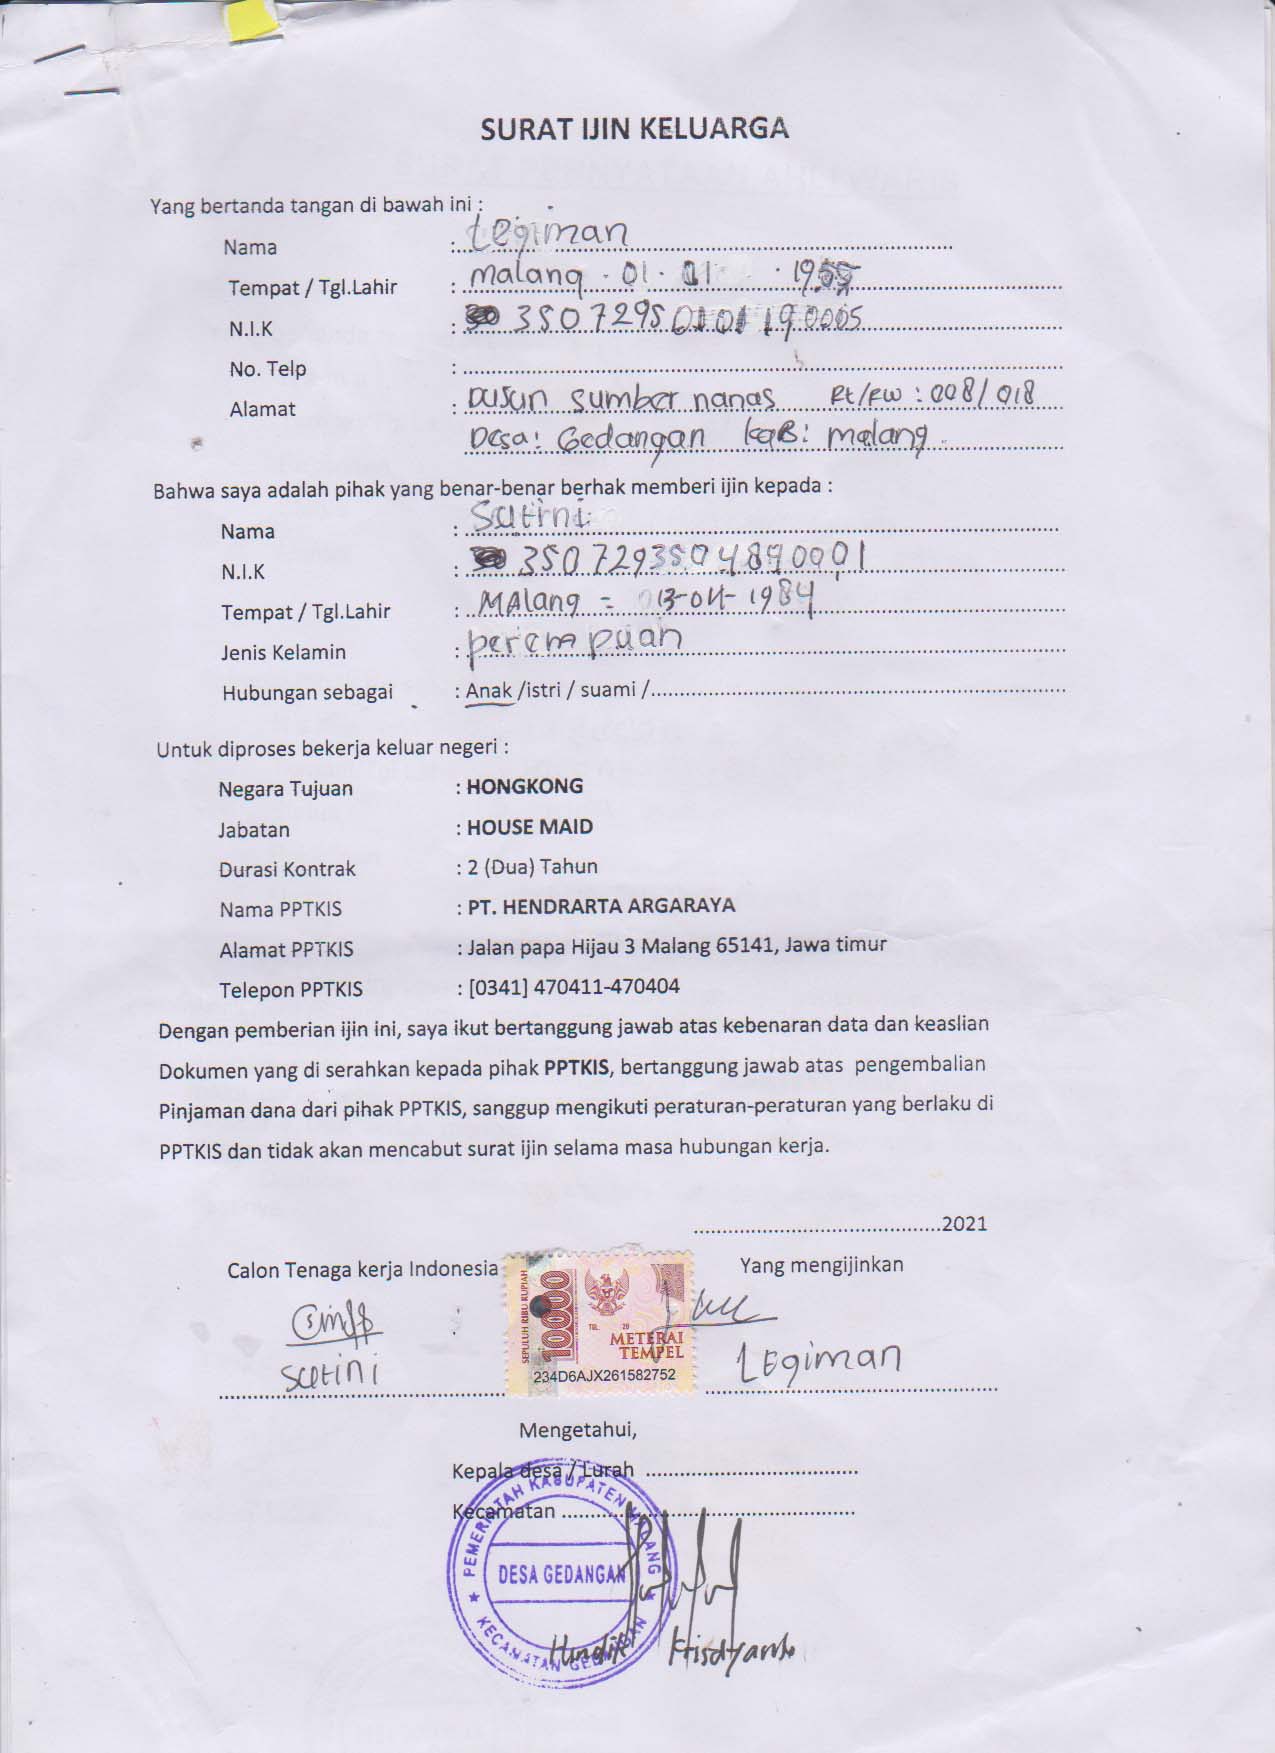 SURAT IJIN KELUARGA
Yang bertanda tangan di bawah ini :
Nama : Legiman
Tempat / Tgl.Lahir : Malang . 01 . 01 .
N.I.K :
No. Telp :
Alamat : Dusun Sumber nanas Rt/Rw : 008/018
Desa : Gedangan KaB : Malang
Bahwa saya adalah pihak yang benar-benar berhak memberi ijin kepada :
Nama : Sutini
N.I.K :
Tempat / Tgl.Lahir : MAlang
Jenis Kelamin : perempuan
Hubungan sebagai : Anak /istri / suami /
Untuk diproses bekerja keluar negeri :
Negara Tujuan : HONGKONG
Jabatan : HOUSE MAID
Durasi Kontrak : 2 (Dua) Tahun
Nama PPTKIS : PT. HENDRARTA ARGARAYA
Alamat PPTKIS : Jalan papa Hijau 3 Malang 65141, Jawa timur
Telepon PPTKIS : [0341] 470411-470404
Dengan pemberian ijin ini, saya ikut bertanggung jawab atas kebenaran data dan keaslian
Dokumen yang di serahkan kepada pihak PPTKIS, bertanggung jawab atas pengembalian
Pinjaman dana dari pihak PPTKIS, sanggup mengikuti peraturan-peraturan yang berlaku di
PPTKIS dan tidak akan mencabut surat ijin selama masa hubungan kerja.
2021
Calon Tenaga kerja Indonesia
Yang mengijinkan
SEPULUH RIBU RUPIAH
10000
TGL. 20
METERAI
TEMPEL
234D6AJX261582752
Sutini
LEgiman
Mengetahui,
Kepala desa / Lurah
Kecamatan
PEMERINTAH KABUPATEN MALANG
DESA GEDANGAN
KECAMATAN GEDANGAN